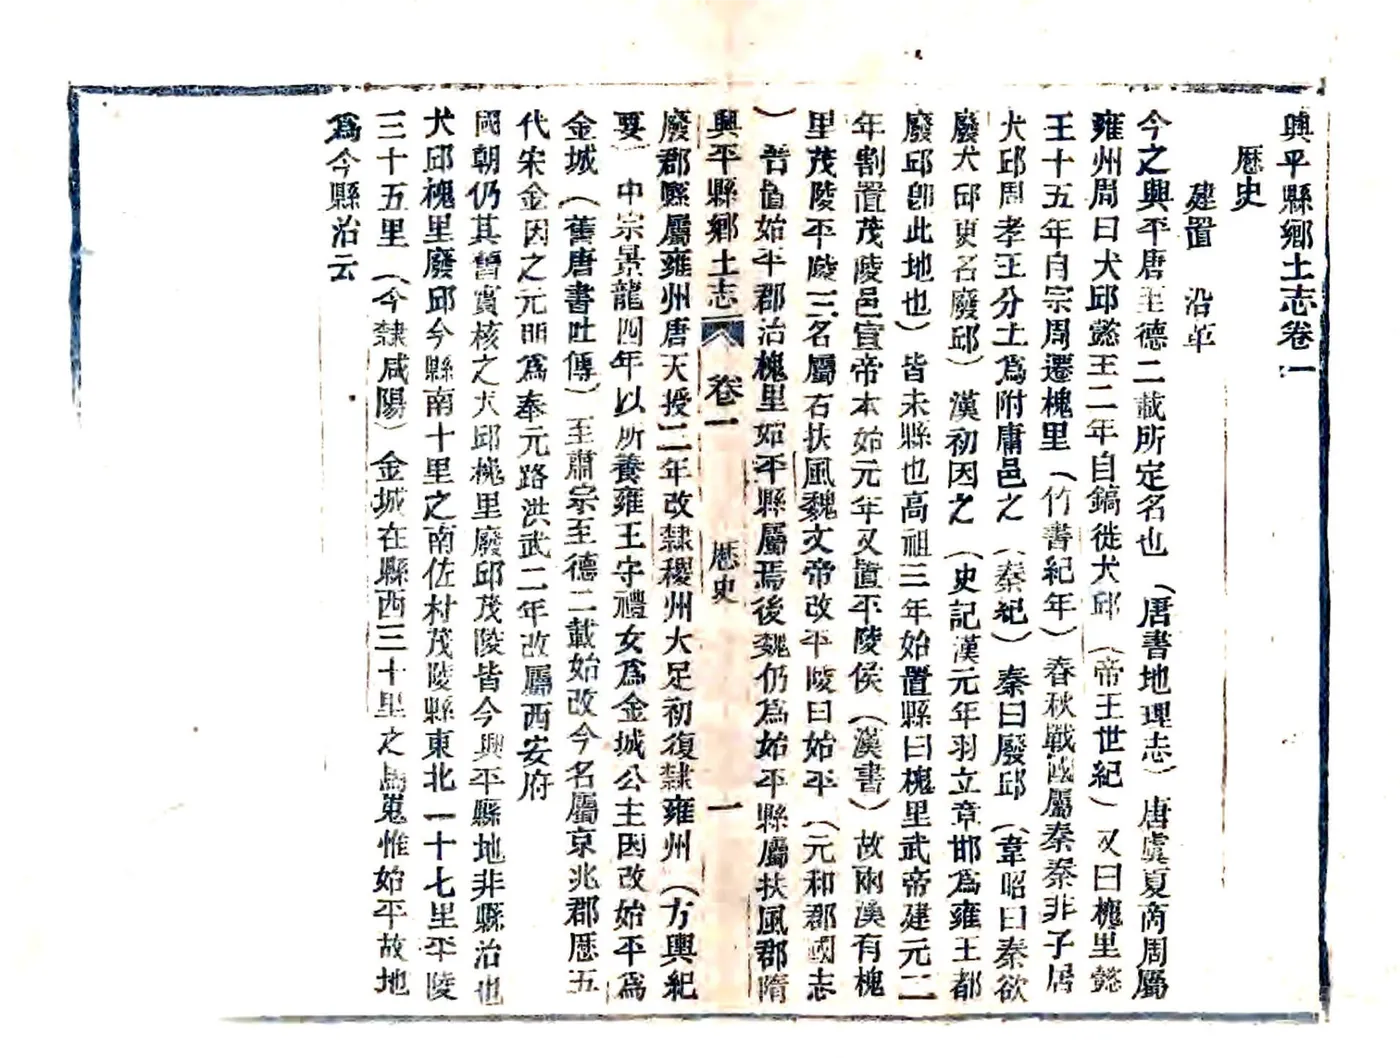 興平縣鄉土志卷一
歷史
建置 沿革
今之興平唐至德二載所定名也（唐書地理志）唐虞夏商周屬
雍州周曰犬邱懿王二年自鎬徙犬邱（帝王世紀）又曰槐里懿
王十五年自宗周遷槐里（竹書紀年）春秋戰國屬秦秦非子居
犬邱周孝王分土為附庸邑之（秦紀）秦曰廢邱（韋昭曰秦欲
廢犬邱更名廢邱）漢初因之（史記漢元年羽立章邯為雍王都
廢邱卽此地也）皆未縣也高祖三年始置縣曰槐里武帝建元二
年割置茂陵邑宣帝本始元年又置平陵侯（漢書）故兩漢有槐
里茂陵平陵三名屬右扶風魏文帝改平陵曰始平（元和郡國志
）晉置始平郡治槐里始平縣屬焉後魏仍為始平縣屬扶風郡隋
興平縣鄉土志 卷一 歷史 一
廢郡縣屬雍州唐天授二年改隸稷州大足初復隸雍州（方輿紀
要）中宗景龍四年以所養雍王守禮女為金城公主因改始平為
金城（舊唐書吐傳）至肅宗至德二載始改今名屬京兆郡歷五
代宋金因之元明為奉元路洪武二年改屬西安府
國朝仍其舊實核之犬邱槐里廢邱茂陵皆今興平縣地非縣治也
犬邱槐里廢邱今縣南十里之南佐村茂陵縣東北一十七里平陵
三十五里（今隸咸陽）金城在縣西三十里之馬嵬惟始平故地
為今縣治云